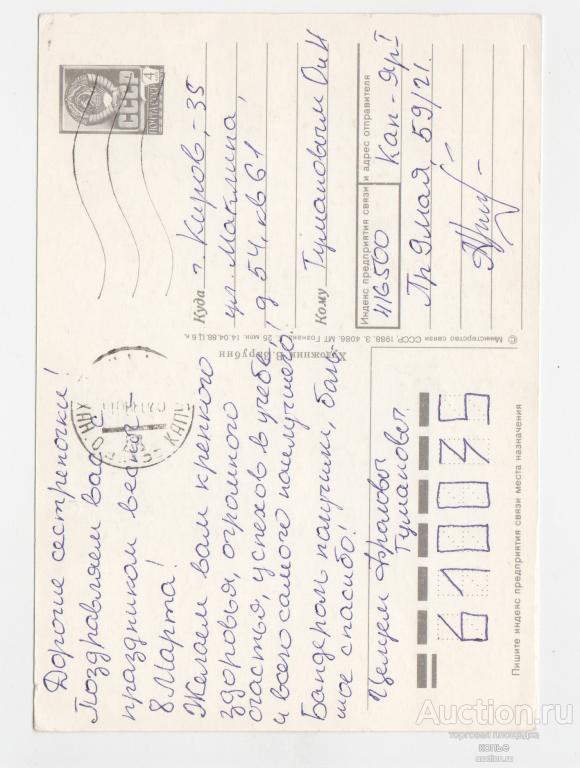 Дорогие сестреночки!
Поздравляем вас с
праздником весны –
8 Марта!
Желаем вам крепкого
здоровья, огромного
счастья, успехов в учебе,
и всего самого наилучшего!
Бандероль получили, боль-
шое спасибо!
Целуем Фроловы
Тумановы.
610035
Пишите индекс предприятия связи места назначения
ПОЧТА СССР
4
Куда г. Киров,-35
ул. Маклина,
д 54, кв 61
Кому Тумановым О и Н
Индекс предприятия связи и адрес отправителя
416500 Кап-Яр I
Прямая, 59/21.
© Министерство связи СССР. 1988. З. 4086. МТ Гознака. 25 коп. 14.04.88. Ц 6 к.
Художник В. Зарубин
Auction.ru
торговая площадка
копье
auction.ru